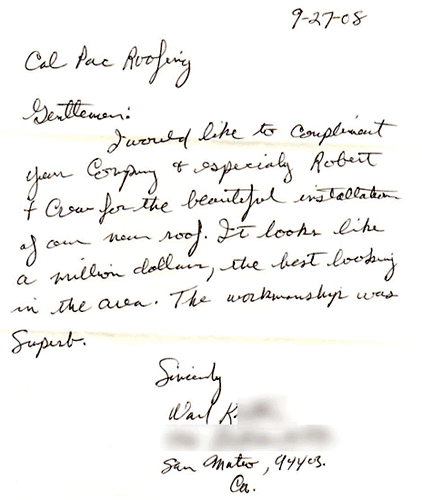 9-27-08
Cal Pac Roofing
Gentlemen:
I would like to compliment
your Company & especialy Robert
& Crew for the beautiful installation
of our new roof. It looks like
a million dollars, the best looking
in the area. The workmanship was
Superb.
Sincerely
K.
San Mateo, 94403.
Ca.